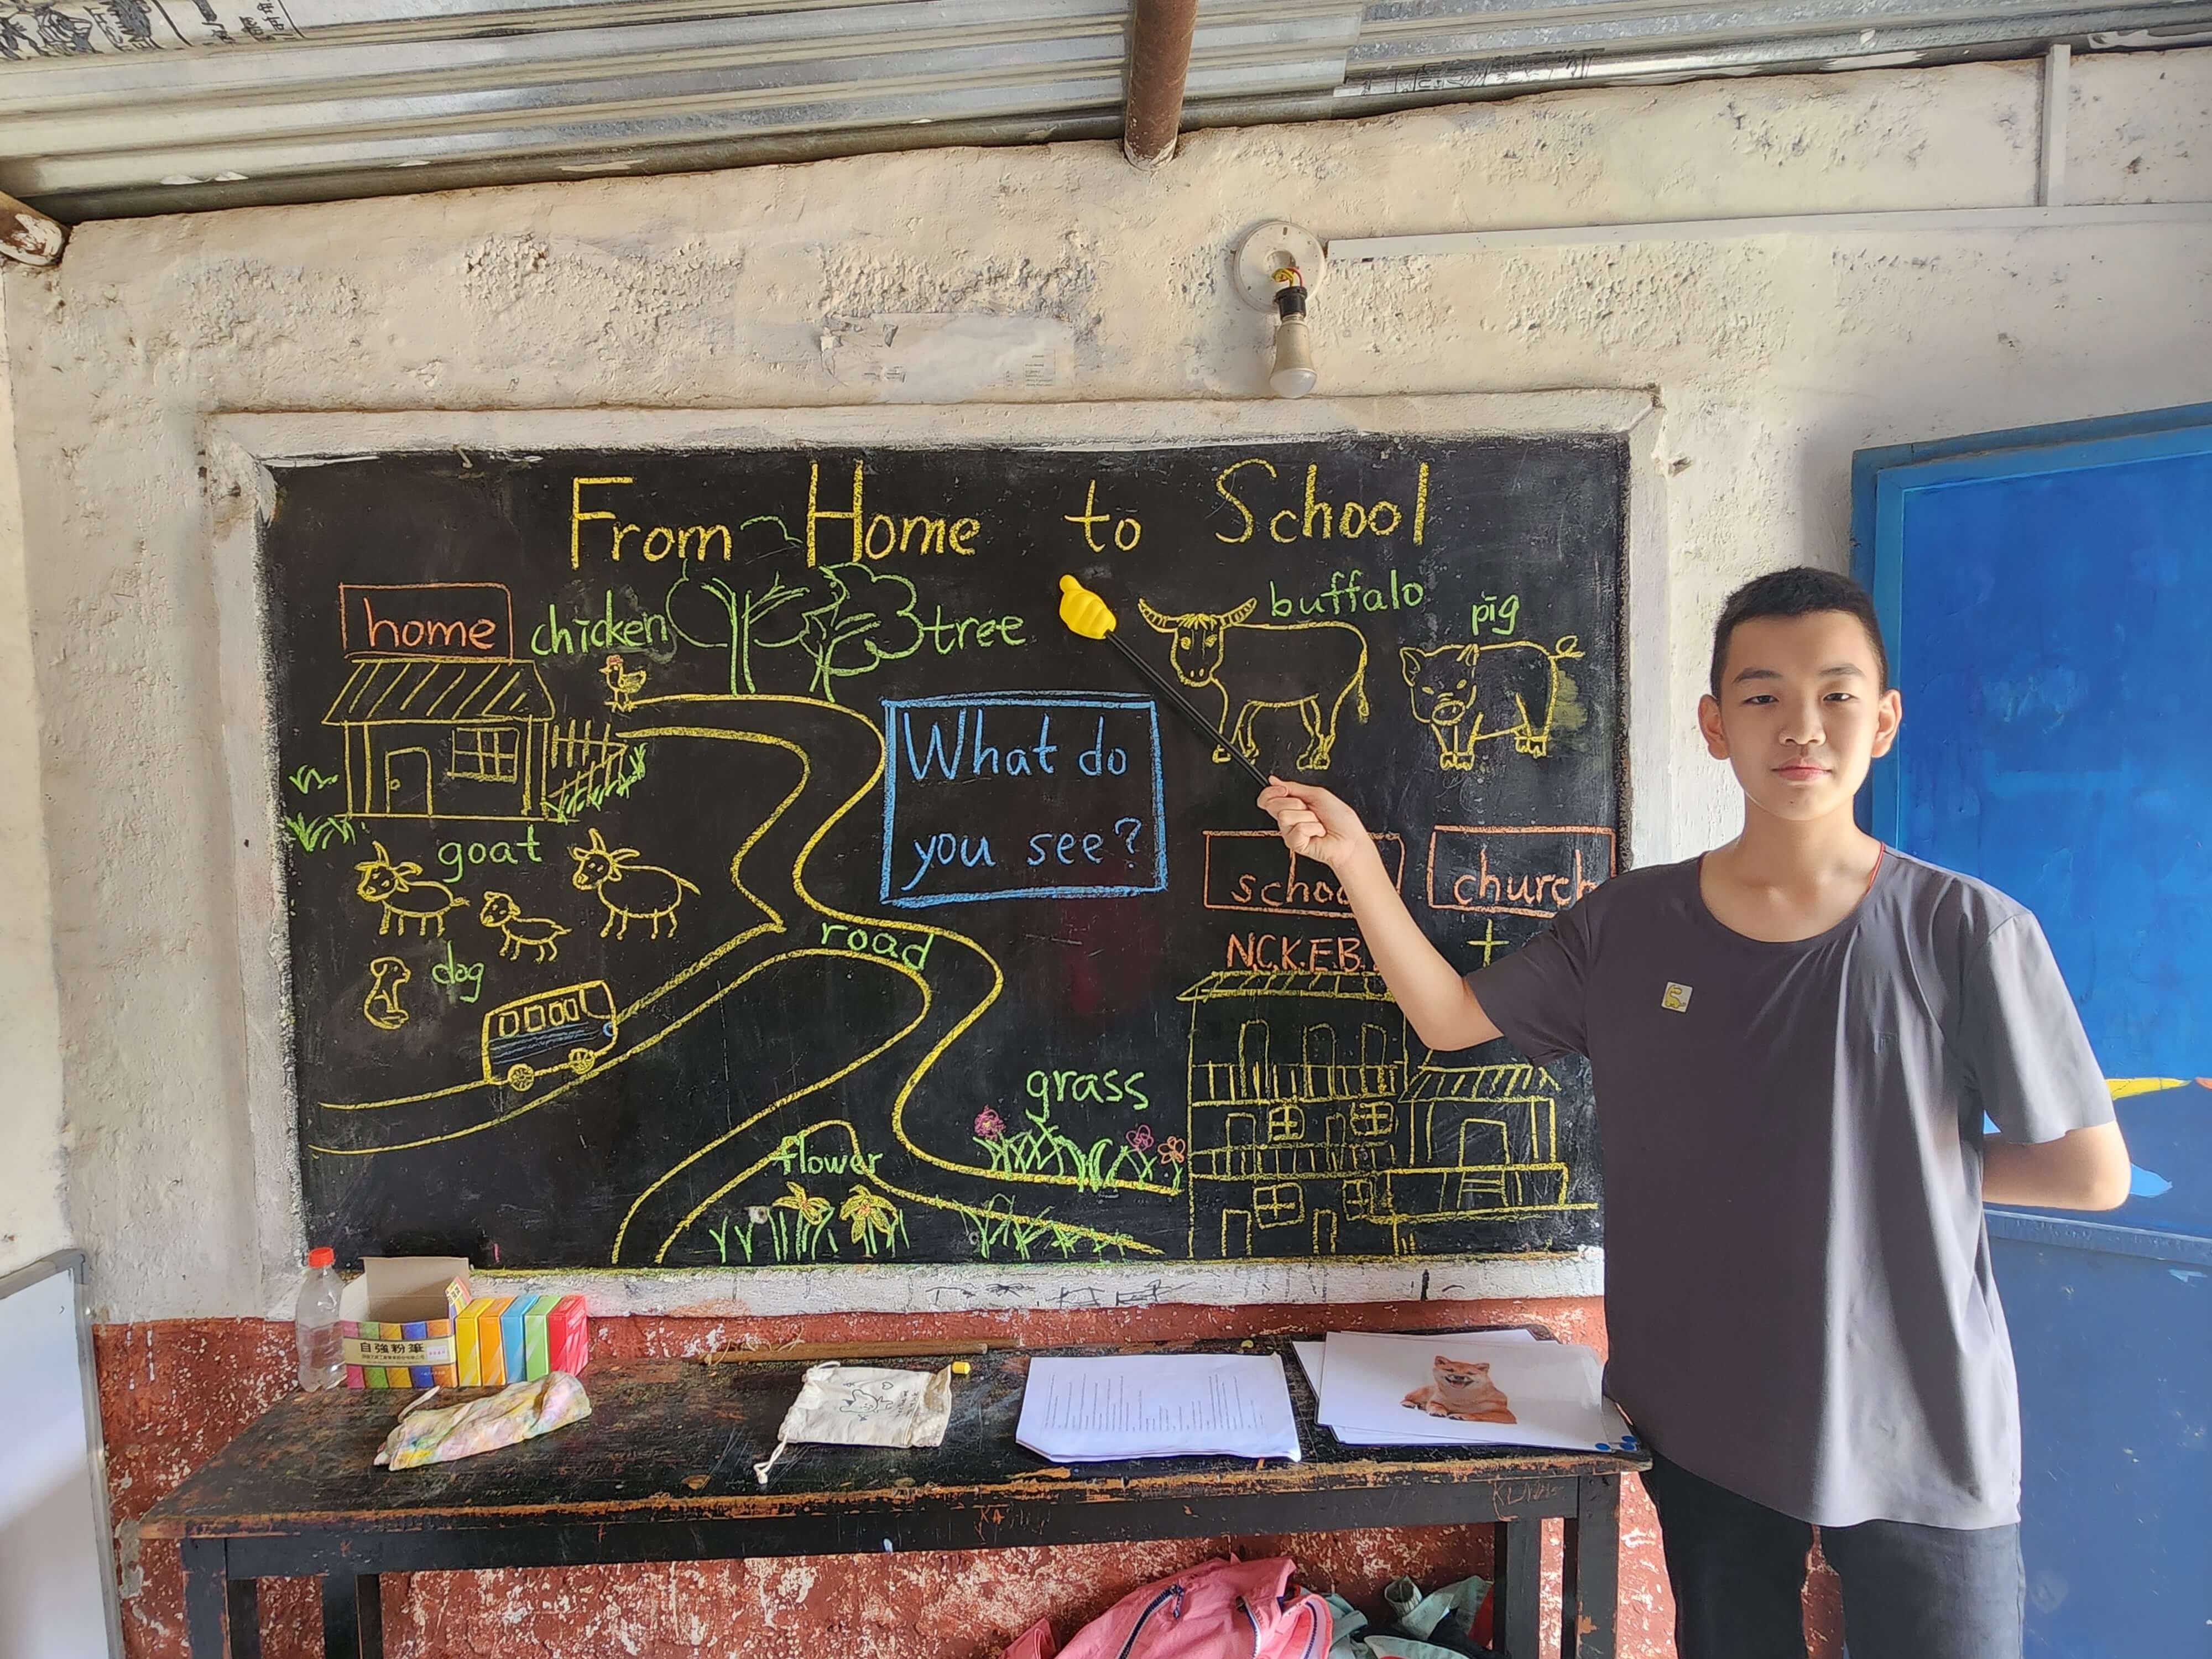 From Home to School
home
chicken
tree
buffalo
pig
What do
you see?
goat
school
church
road
NCKEB
dog
grass
flower
自強粉筆
KA